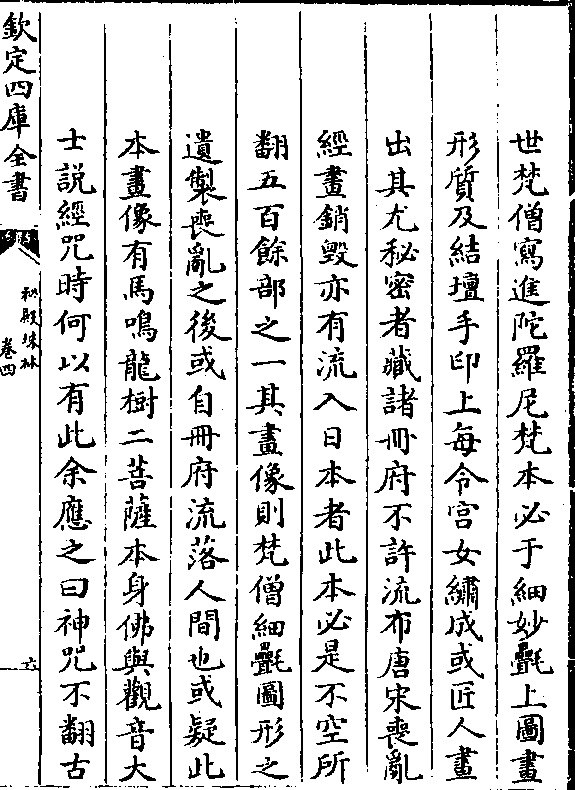 世梵僧寫進陀羅尼梵本必于細妙㲲上圖畫
形質及結壇手印上每令宫女繡成或匠人畫
出其尤秘密者藏諸冊府不許流布唐宋喪亂
經畫銷毀亦有流入日本者此本必是不空所
翻五百餘部之一其畫像則梵僧細㲲圖形之
遺製喪亂之後或自冊府流落人間也或疑此
本畫像有馬鳴龍樹二菩薩本身佛與觀音大
士説經咒時何以有此余應之曰神咒不翻古
欽定四庫全書
秘殿珠林
卷四
六